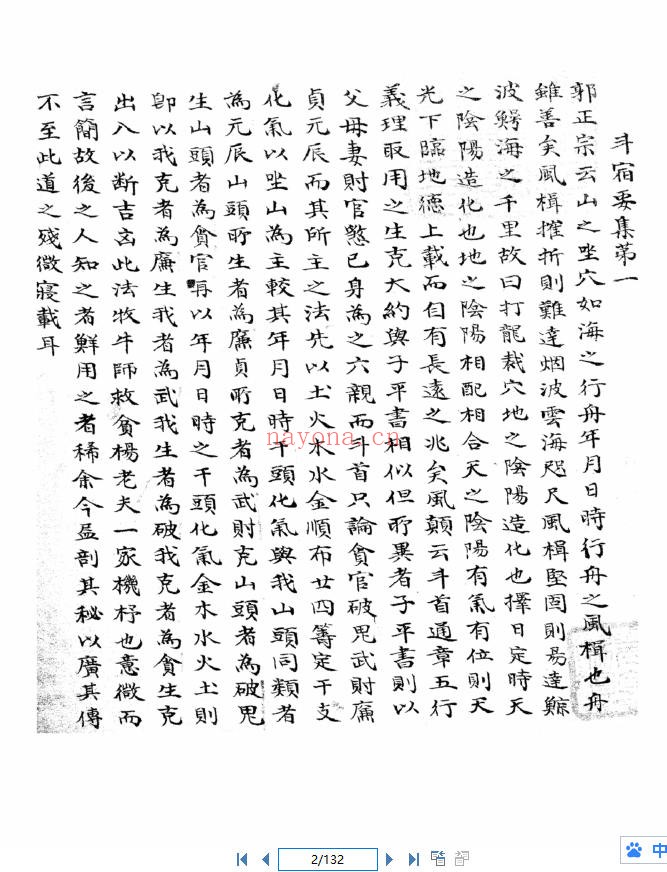 斗宿要集第一
郭正宗云山之坐穴如海之行舟年月日時行舟之風楫也舟
雖善矣風楫摧折則難達烟波雲海咫尺風楫堅固則易達鯨
波鰐海之千里故曰打龍裁穴地之陰陽造化也擇日定時天
之陰陽造化也地之陰陽相配相合天之陰陽有氣有位則天
光下臨地德上載而自有長遠之兆矣風顛云斗首通章五行
義理取用之生克大約與子平書相似但所異者子平書則以
父母妻財官鬼己身為之六親而斗首只論貪官破鬼武財廉
貞元辰而其所主之法先以土火木水金順布廿四筹定干支
化氣以坐山為主較其年月日時干頭化氣與我山頭同類者
為元辰山頭所生者為廉貞所克者為武財克山頭者為破鬼
生山頭者為貪官再以年月日時之干頭化氣金木水火土則
卽以我克者為廉生我者為武我生者為破我克者為貪生克
出入以斷吉凶此法牧牛師救貧楊老夫一家機杼也意微而
言簡故後之人知之者鮮用之者稀余今益剖其秘以廣其傳
不至此道之殘微寢載耳
nayona.cn
2/132
中